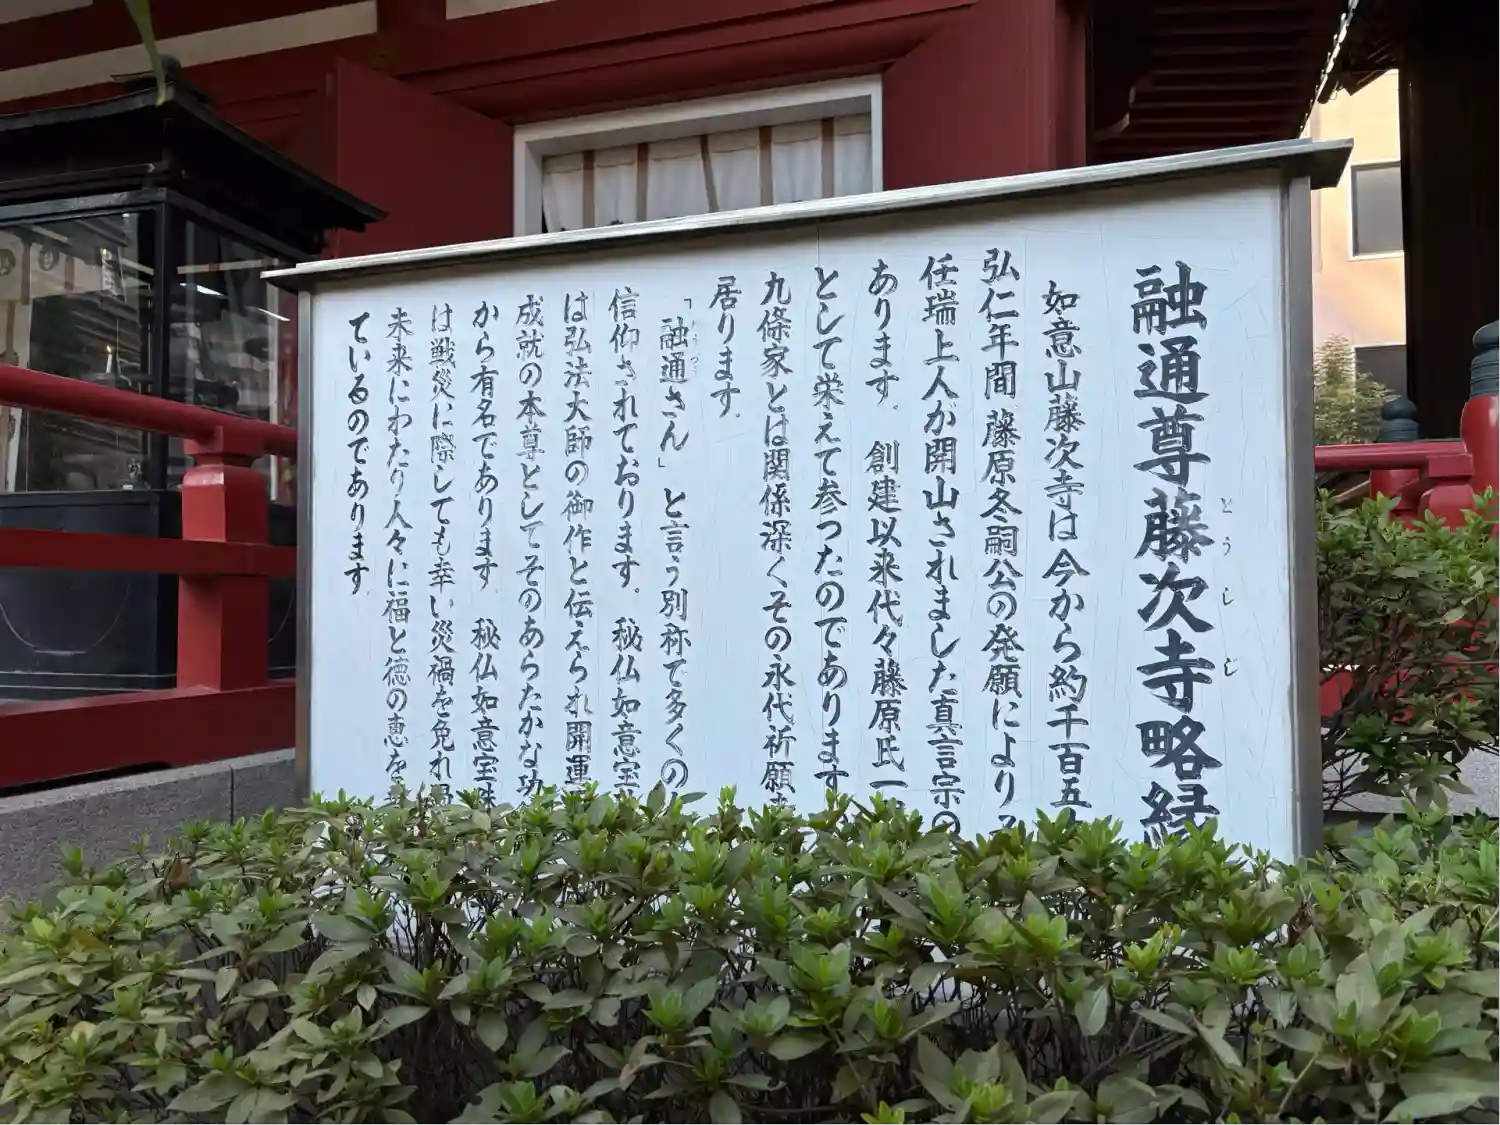 融通尊藤次寺略縁
とうじじ
如意山藤次寺は今から約千百五
弘仁年間藤原冬嗣公の発願により
任瑞上人が開山されました真言宗の
あります。創建以来代々藤原氏一
として栄えて参ったのであります
九條家とは関係深くその永代祈願
居ります。
「融通さん」と言う別称で多くの
ゆうづう
信仰されております。秘仏如意宝
は弘法大師の御作と伝えられ開運
成就の本尊としてそのあらたかな功
から有名であります。秘仏如意宝珠
は戦災に際しても幸い災禍を免れ
未来にわたり人々に福と徳の恵を
ているのであります。